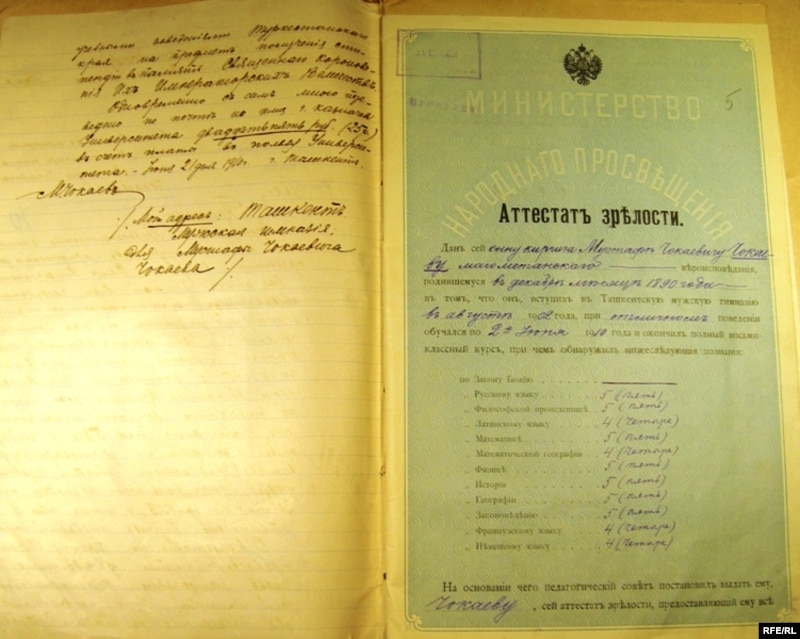 учебными заведеніями Туркестанскаго
края на предметъ полученія стипендіи
въ память Священнаго Коронованія
Ихъ Императорскихъ Величествъ.
Одновременно съ симъ мною пере-
ведено по почтѣ на имя г. казначея
Университета двадцать пять руб. (25 р.)
въ счетъ платы въ пользу Универси-
тета. - Іюня 21 дня 1910 г. г. Ташкентъ
М. Чокаевъ
Мой адресъ: Ташкентъ
Мужская гимназія,
для Мустафы Чокаевича
Чокаева
5
МИНИСТЕРСТВО
НАРОДНАГО ПРОСВѢЩЕНІЯ
Аттестатъ зрѣлости.
Данъ сей сыну киргиза Мустафѣ Чокаевичу Чокае-
ву магометанскаго вѣроисповѣданія,
родившемуся въ декабрѣ мѣсяцѣ 1890 года
въ томъ, что онъ, вступивъ въ Ташкентскую мужскую гимназію
въ августѣ 1902 года, при отличномъ поведеніи
обучался по 2ое Іюня 1910 года и окончилъ полный восьми-
классный курсъ, при чемъ обнаружилъ нижеслѣдующія познанія:
по Закону Божію
„ Русскому языку 5 (пять)
„ Философской пропедевтикѣ 5 (пять)
„ Латинскому языку 4 (четыре)
„ Математикѣ 5 (пять)
„ Математической географіи 4 (четыре)
„ Физикѣ 5 (пять)
„ Исторіи 5 (пять)
„ Географіи 5 (пять)
„ Законовѣдѣнію 5 (пять)
„ Французскому языку 4 (четыре)
„ Нѣмецкому языку 4 (четыре)
На основаніи чего педагогическій совѣтъ постановилъ выдать ему,
Чокаеву, сей аттестатъ зрѣлости, предоставляющій ему всѣ
RFE/RL